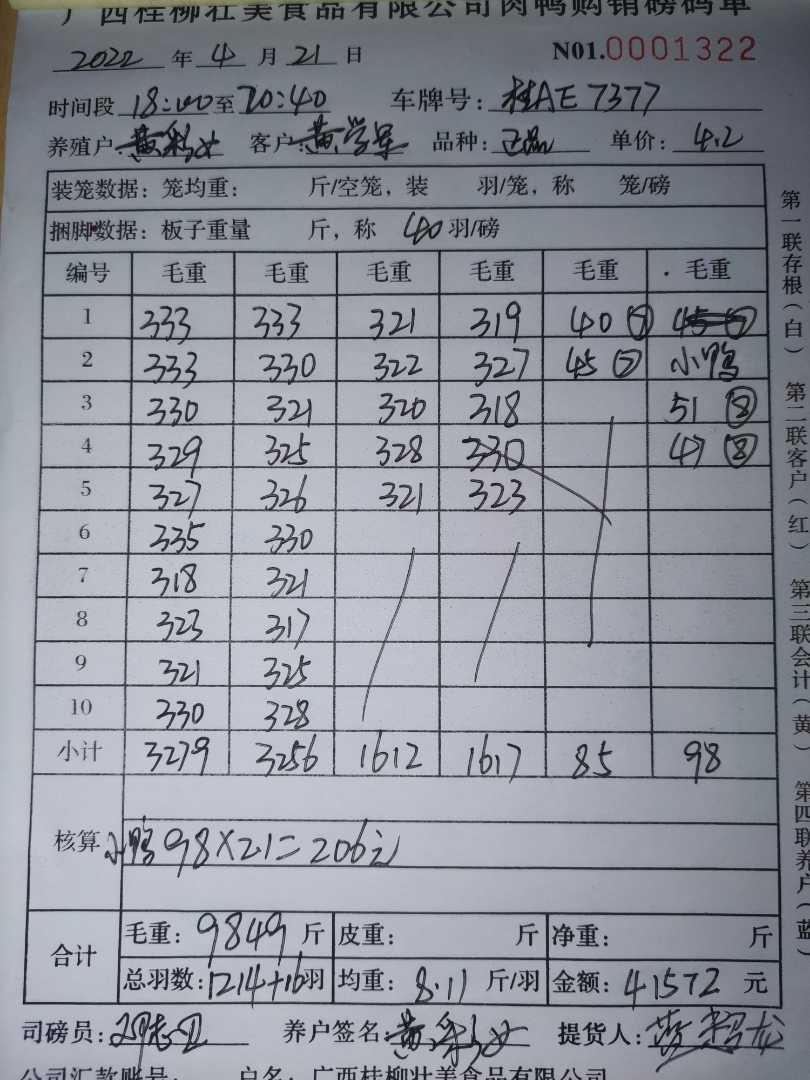 广西桂柳壮美食品有限公司肉鸭购销磅码单
2022 年 4 月 21 日 N01.0001322
时间段 18:00至20:40 车牌号: 桂AE7377
养殖户: 黄彩女 客户: 黄学军 品种: 正品 单价: 4.2
装笼数据: 笼均重: 斤/空笼, 装 羽/笼, 称 笼/磅
捆脚数据: 板子重量 斤, 称 40羽/磅
编号 毛重 毛重 毛重 毛重 毛重 毛重
1 333 333 321 319 40 ⑤
2 333 330 322 327 45 小鸭
3 330 321 320 318 51 ⑧
4 329 325 328 330 47 ⑧
5 327 326 321 323
6 335 330
7 318 321
8 323 317
9 321 325
10 330 328
小计 3279 3256 1612 1617 85 98
核算 小鸭98×2.1=206元
合计 毛重: 9849 斤 皮重: 斤 净重: 斤
总羽数: 1214+16羽 均重: 8.11 斤/羽 金额: 41572 元
司磅员: 养户签名: 黄彩女 提货人:
公司汇款账号: 户名: 广西桂柳壮美食品有限公司
第一联存根(白) 第二联客户(红) 第三联会计(黄) 第四联养户(蓝)